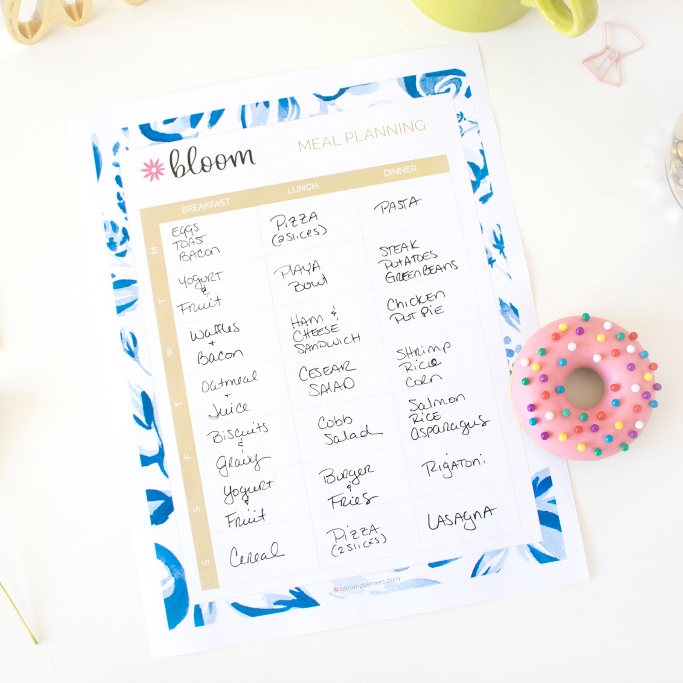 bloom MEAL PLANNING
BREAKFAST LUNCH DINNER
M
EGGS
TOAS
BACON
PIZZA
(2 SLICES)
PASTA
T
YOGURT
&
FRUIT
PLAYA
BOWL
STEAK
POTATOES
GREEN BEANS
W
Waffles
+
Bacon
HAM &
CHEESE
SANDWICH
CHICKEN
POT PIE
T
Oatmeal
+
Juice
CESEAR
SALAD
SHRIMP
RICE
CORN
F
Biscuits
&
Gravy
Cobb
Salad
Salmon
RICE
Asparagus
S
Yogurt
&
Fruit
Burger
&
Fries
Rigatoni
S
Cereal
Pizza
(2 SLICES)
LASAGNA
bloomplanners.com